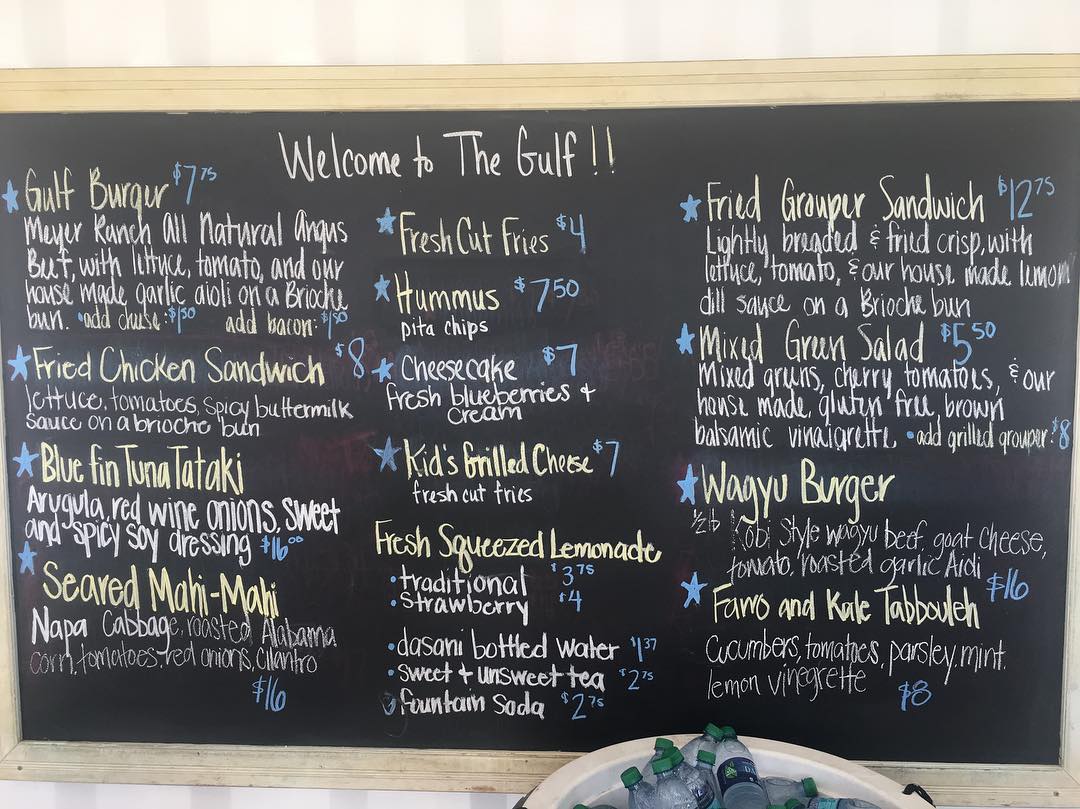 Welcome to The Gulf !!
Gulf Burger $7 75
Meyer Ranch All Natural Angus
Beef, with lettuce, tomato, and our
house made garlic aioli on a Brioche
bun. •add cheese: $1 50 add bacon: $1 50
Fried Chicken Sandwich $8
lettuce, tomatoes, spicy buttermilk
sauce on a brioche bun
Blue fin Tuna Tataki
Arugula, red wine onions, sweet
and spicy soy dressing $16 00
Seared Mahi-Mahi
Napa Cabbage, roasted Alabama
corn, tomatoes, red onions, cilantro
$16
Fresh Cut Fries $4
Hummus $7 50
pita chips
Cheesecake $7
fresh blueberries +
cream
Kid's Grilled Cheese $7
fresh cut fries
Fresh Squeezed Lemonade
•traditional $3 75
•Strawberry $4
•dasani bottled water $1 37
•sweet + unsweet tea $2 75
•fountain Soda $2 75
Fried Grouper Sandwich $12 75
Lightly breaded & fried crisp, with
lettuce, tomato, & our house made lemon
dill sauce on a Brioche bun
Mixed Green Salad $5 50
Mixed greens, cherry tomatoes, & our
house made, gluten free, brown
balsamic vinaigrette •add grilled grouper: $8
Wagyu Burger
1/2 lb Kobi Style wagyu beef, goat cheese,
tomato, roasted garlic Aioli $16
Farro and Kale Tabbouleh
Cucumbers, tomatoes, parsley, mint,
lemon vinegrette $8